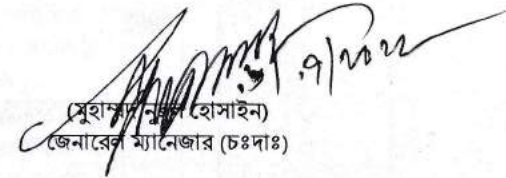 (মুহাম্মদ নুরুল হোসাইন)
জেনারেল ম্যানেজার (চঃদাঃ)